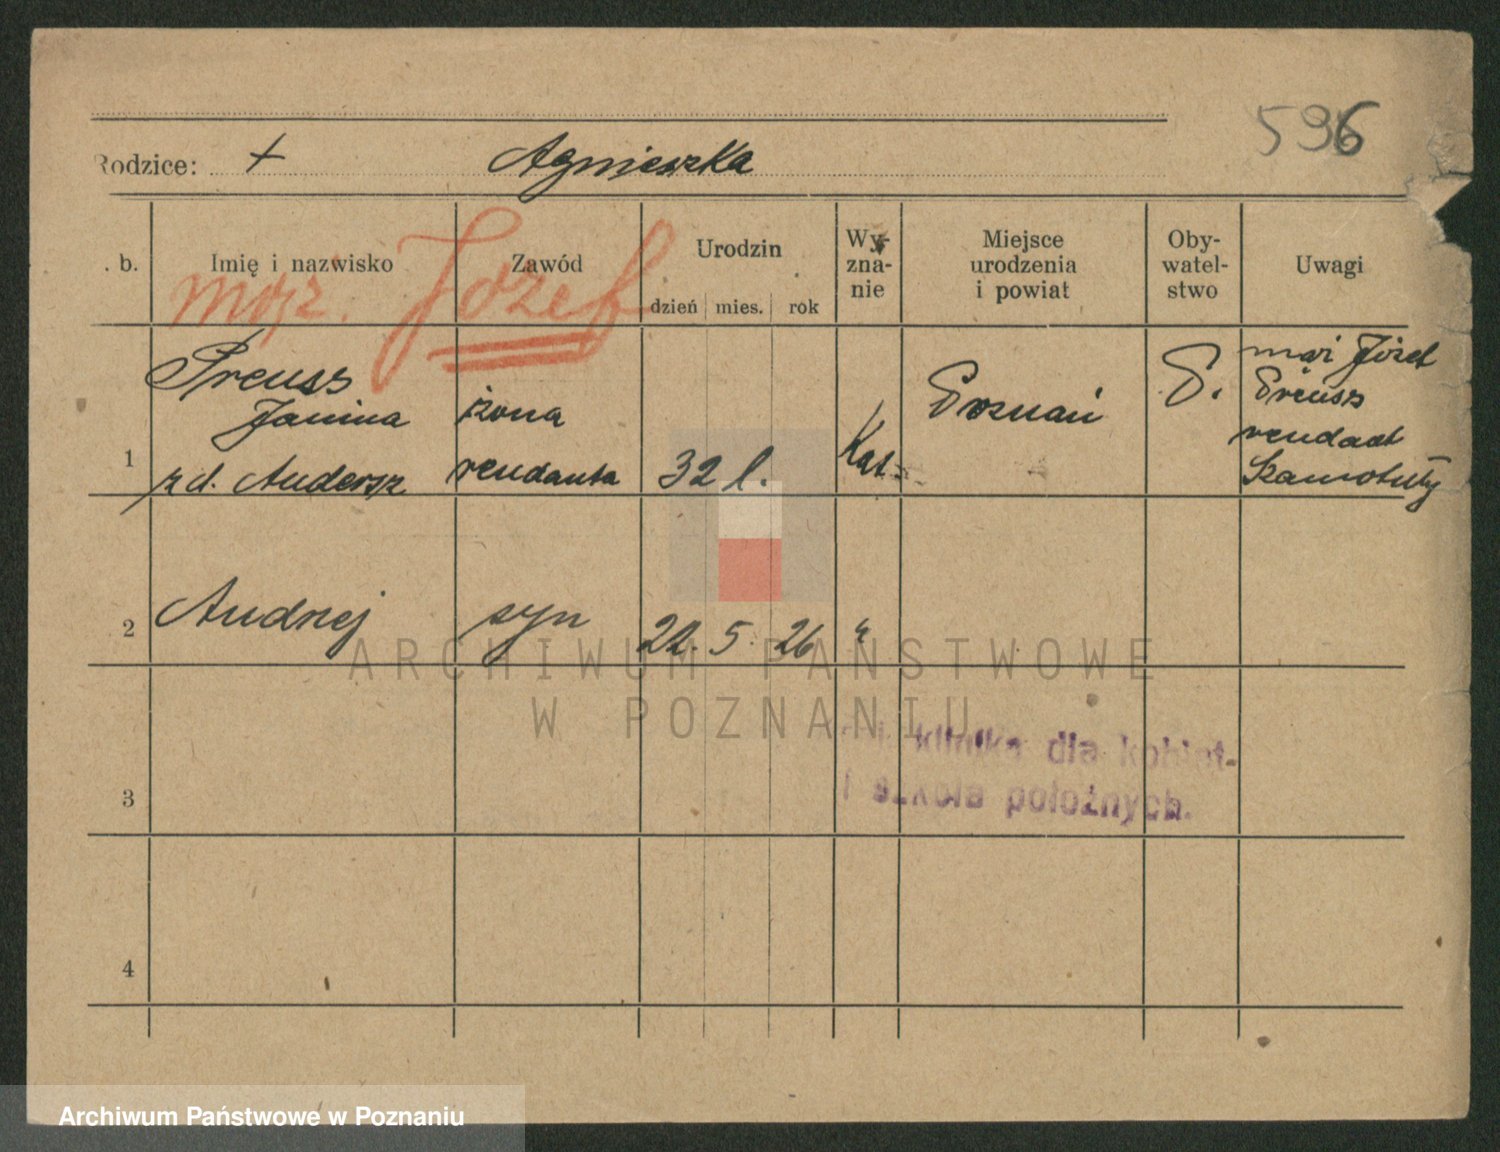 596
Rodzice: + Agnieszka
. b. Imię i nazwisko Zawód Urodzin dzień mies. rok Wy-zna-nie Miejsce urodzenia i powiat Oby-watel-stwo Uwagi
mąż. Józef
1 Preuss Janina z d. Andersz żona rendanta 32 l. Kat. Poznań P. mąż Józef Preuss rendant Szamotuły
2 Andrzej syn 22. 5. 26 "
ARCHIWUM PAŃSTWOWE
W POZNANIU
klinika dla kobiet
i szkoła położnych.
3
4
Archiwum Państwowe w Poznaniu